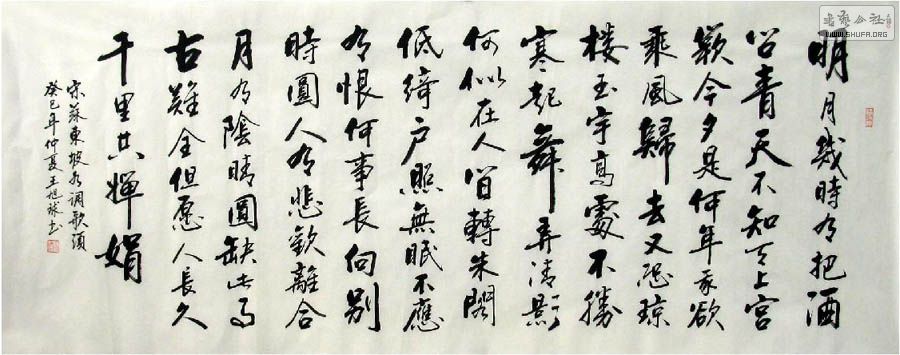 明月幾時有把酒
问青天不知天上宮
闕今夕是何年我欲
乘風歸去又恐琼
楼玉宇高處不勝
寒起舞弄清影
何似在人间轉朱閣
低綺户照無眠不應
有恨何事長向别
時圓人有悲歡離合
月有陰晴圓缺此事
古難全但愿人長久
千里共嬋娟
宋蘇東坡水调歌頭
癸巳年仲夏王旭书
书艺公社
WWW.SHUFA.ORG